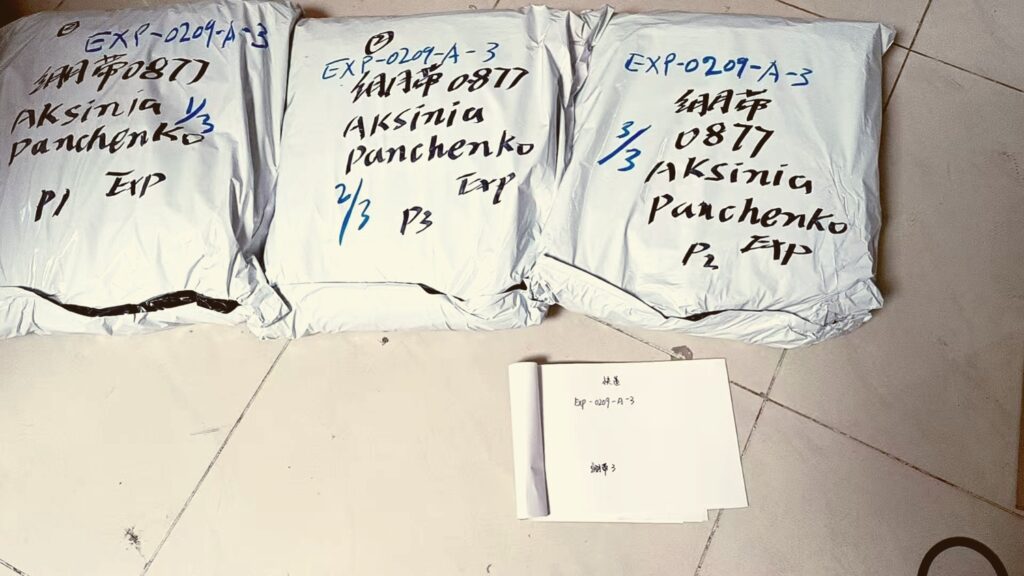 EXP-0209-A-3
绷带0877
Aksinia
1/3
Panchenko
P1 Exp
②
EXP-0209-A-3
绷带0877
Aksinia
Panchenko
2/3
Exp
P3
EXP-0209-A-3
绷带
3/3
0877
Aksinia
Panchenko
P2 Exp
快递
Exp-0209-A-3
绷带3